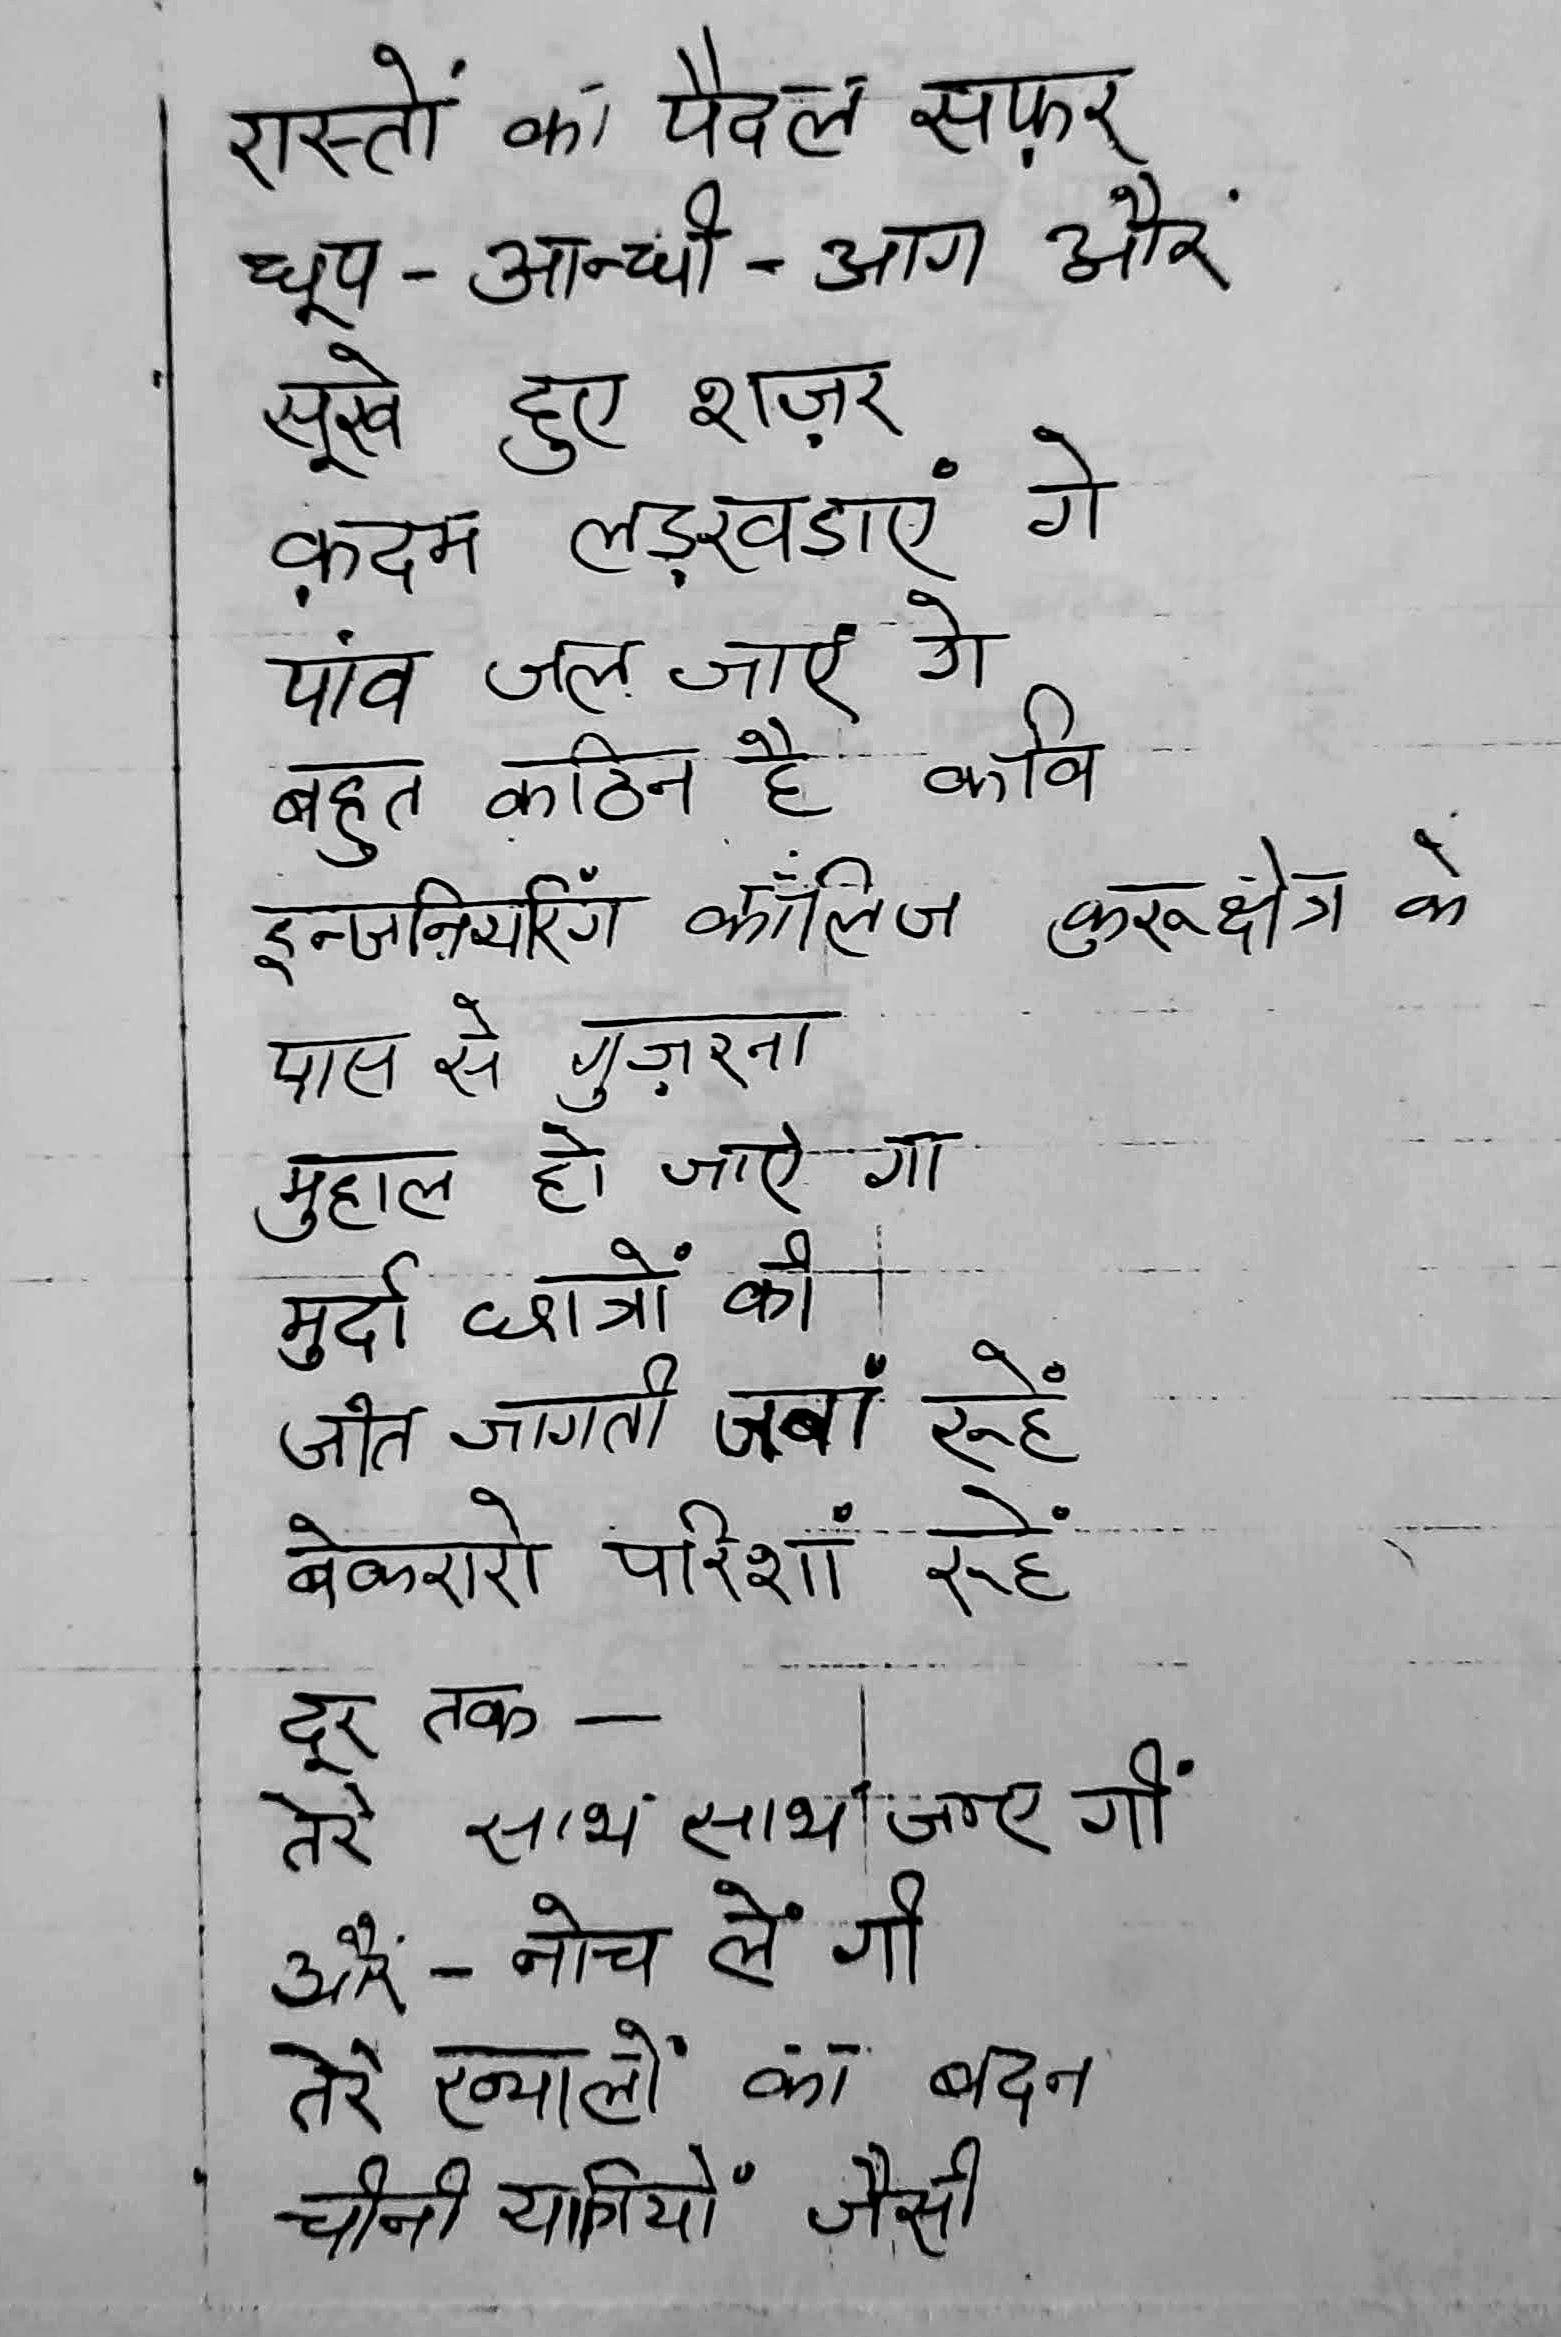 रास्तों का पैदल सफ़र
धूप - आन्धी - आग और
सूखे हुए शज़र
क़दम लड़खडाएं गे
पांव जल जाएं गे
बहुत कठिन है कवि
इन्जनियरिंग कॉलिज कुरूक्षेत्र के
पास से गुज़रना
मुहाल हो जाऐ गा
मुर्दा छात्रों की
जीत जागती जबां रूहें
बेकरारो परिशां रूहें
दूर तक —
तेरे साथ साथ जाए गीं
और - नोच लें गी
तेरे ख्यालों का बदन
चीनी जैसी